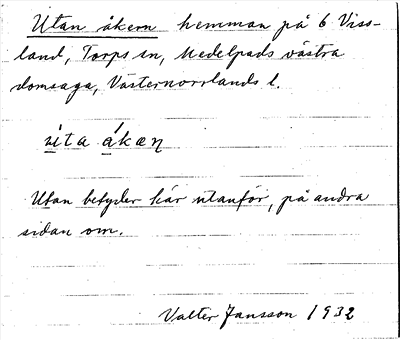 Utan åkern hemman på 6 Viss-
land, Torps sn, Medelpads västra
domsaga, Västernorrlands l.
åkæn
Utan betyder här utanför, på andra
sidan om.
Valter Jansson 1932